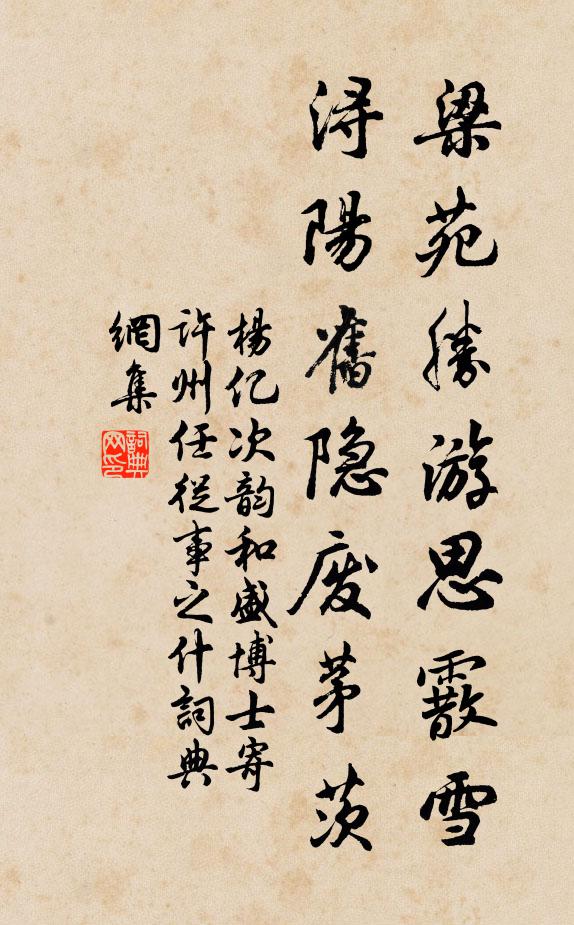 梁苑勝游思霰雪
潯陽舊隐废茅茨
楊亿次韵和盛博士寄
許州任從事之什詞典
網集
詞典网印